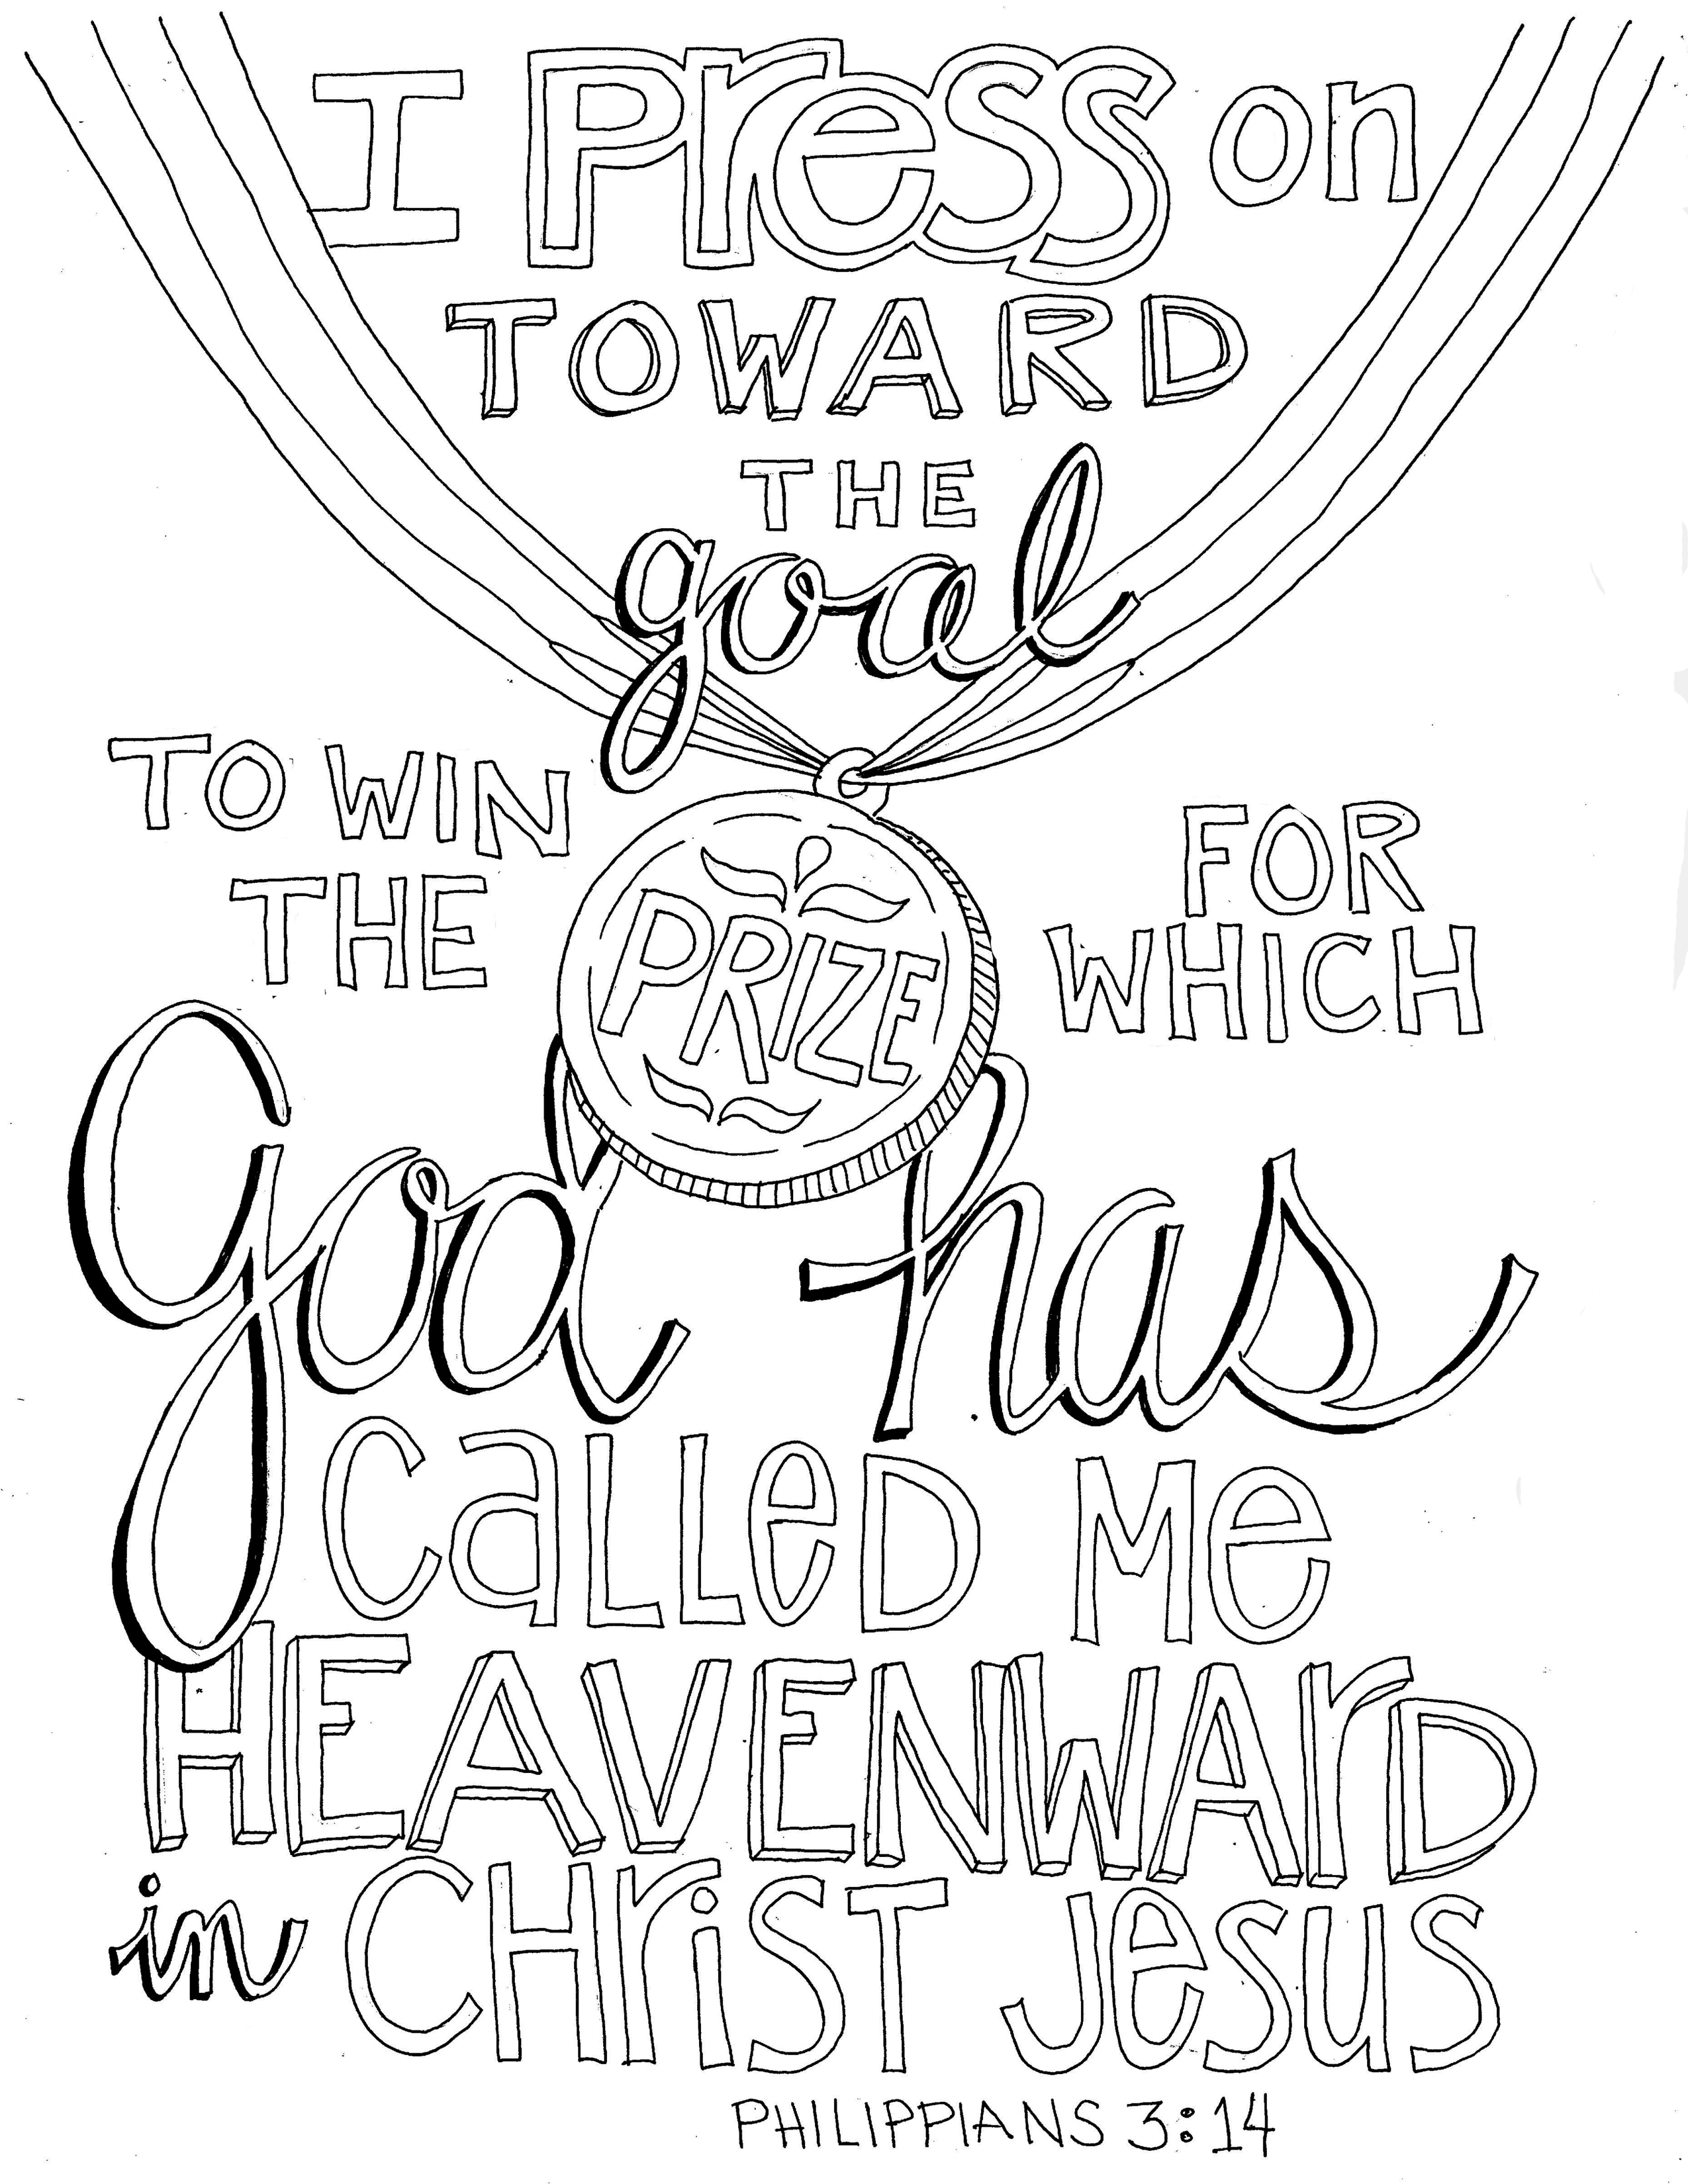 I Press on
TOWARD
THE
goal
TO WIN
THE
PRIZE
FOR
WHICH
God has
CaLLeD Me
HEAVENWArD
in CHriST Jesus
PHILIPPIANS 3:14